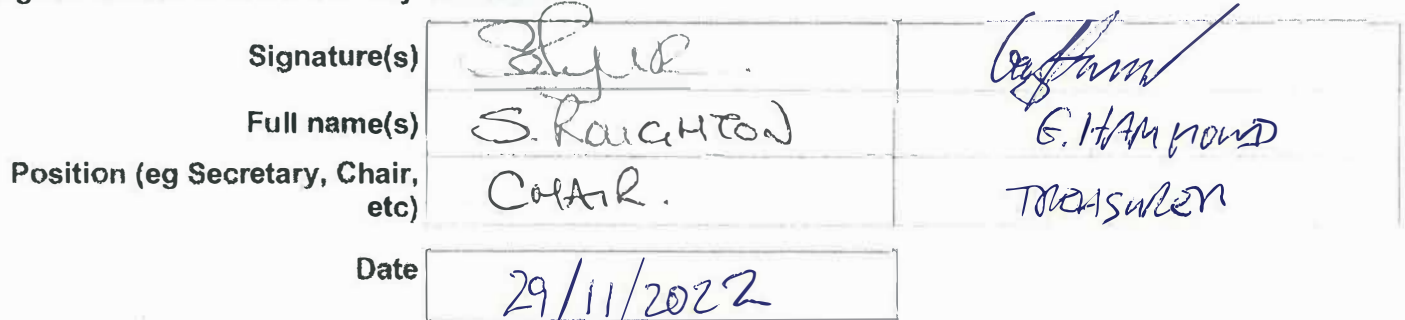 Signature(s)
Full name(s) S. ROUGHTON G. HAMMOND
Position (eg Secretary, Chair,
etc) CHAIR. TREASURER
Date 29/11/2022